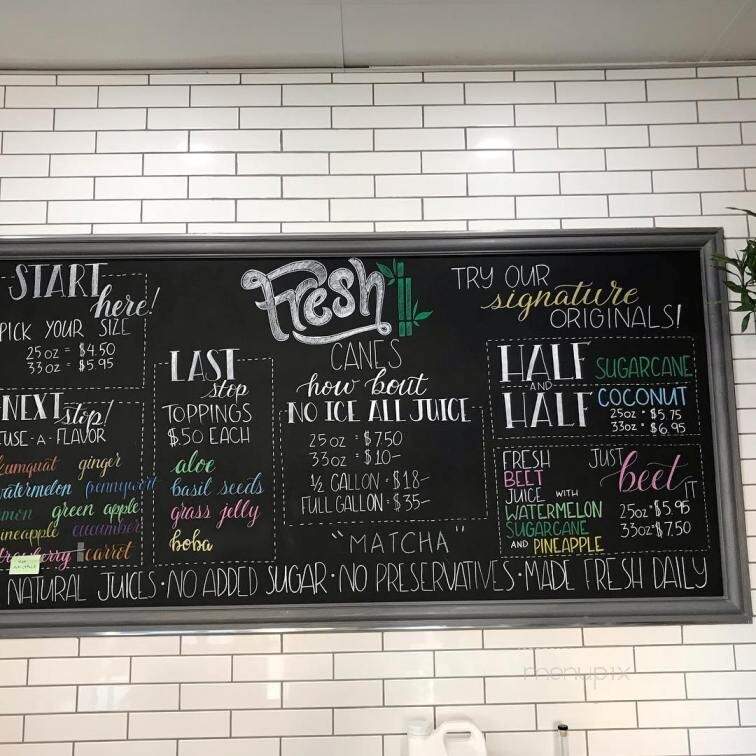 START
here!
PICK YOUR SIZE
25oz = $4.50
33oz = $5.95
NEXT stop!
FUSE-A-FLAVOR
kumquat ginger
watermelon pennywort
green apple
pineapple cucumber
strawberry carrot
LAST
stop
TOPPINGS
$.50 EACH
aloe
basil seeds
grass jelly
boba
Fresh
CANES
how bout
NO ICE ALL JUICE
25oz = $7.50
33oz = $10-
½ GALLON = $18-
FULL GALLON = $35-
"MATCHA"
TRY OUR
signature
ORIGINALS!
HALF SUGARCANE
AND
HALF COCONUT
25oz • $5.75
33oz • $6.95
FRESH
BEET
JUICE WITH
WATERMELON
SUGARCANE
AND PINEAPPLE
JUST
beet IT
25oz • $5.95
33oz • $7.50
NATURAL JUICES • NO ADDED SUGAR • NO PRESERVATIVES • MADE FRESH DAILY
menupix